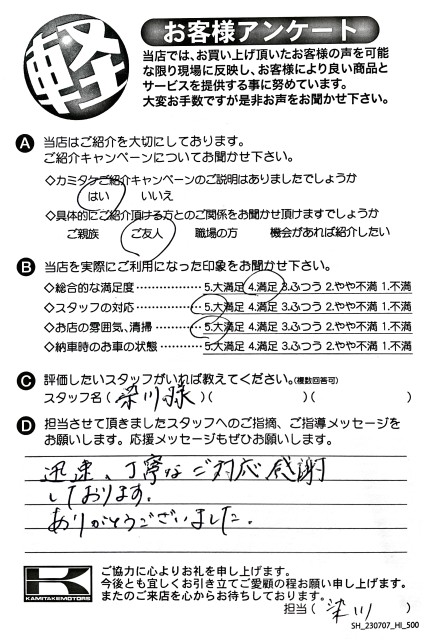 軽
お客様アンケート
当店では、お買い上げ頂いたお客様の声を可能
な限り現場に反映し、お客様により良い商品と
サービスを提供する事に努めています。
大変お手数ですが是非お声をお聞かせ下さい。
A 当店はご紹介を大切にしております。
ご紹介キャンペーンについてお聞かせ下さい。
◇カミタケご紹介キャンペーンのご説明はありましたでしょうか
はい いいえ
◇具体的にご紹介頂ける方とのご関係をお聞かせ頂けますでしょうか
ご親族 ご友人 職場の方 機会があれば紹介したい
B 当店を実際にご利用になった印象をお聞かせ下さい。
◇総合的な満足度 ・・・・・・・・・・・・・ 5.大満足 4.満足 3.ふつう 2.やや不満 1.不満
◇スタッフの対応 ・・・・・・・・・・・・・ 5.大満足 4.満足 3.ふつう 2.やや不満 1.不満
◇お店の雰囲気、清掃 ・・・・・・・・・ 5.大満足 4.満足 3.ふつう 2.やや不満 1.不満
◇納車時のお車の状態 ・・・・・・・・・ 5.大満足 4.満足 3.ふつう 2.やや不満 1.不満
C 評価したいスタッフがいれば教えてください。(複数回答可)
スタッフ名 ( 染川様 )( )( )
D 担当させて頂きましたスタッフへのご指摘、ご指導メッセージを
お願いします。応援メッセージもぜひお願いします。
迅速、丁寧なご対応感謝
しております。
ありがとうございました。
KAMITAKEMOTORS
ご協力に心よりお礼を申し上げます。
今後とも宜しくお引き立てご愛顧の程お願い申し上げます。
またのご来店を心からお待ちしております。
担当 ( 染川 )
SH_230707_HI_500